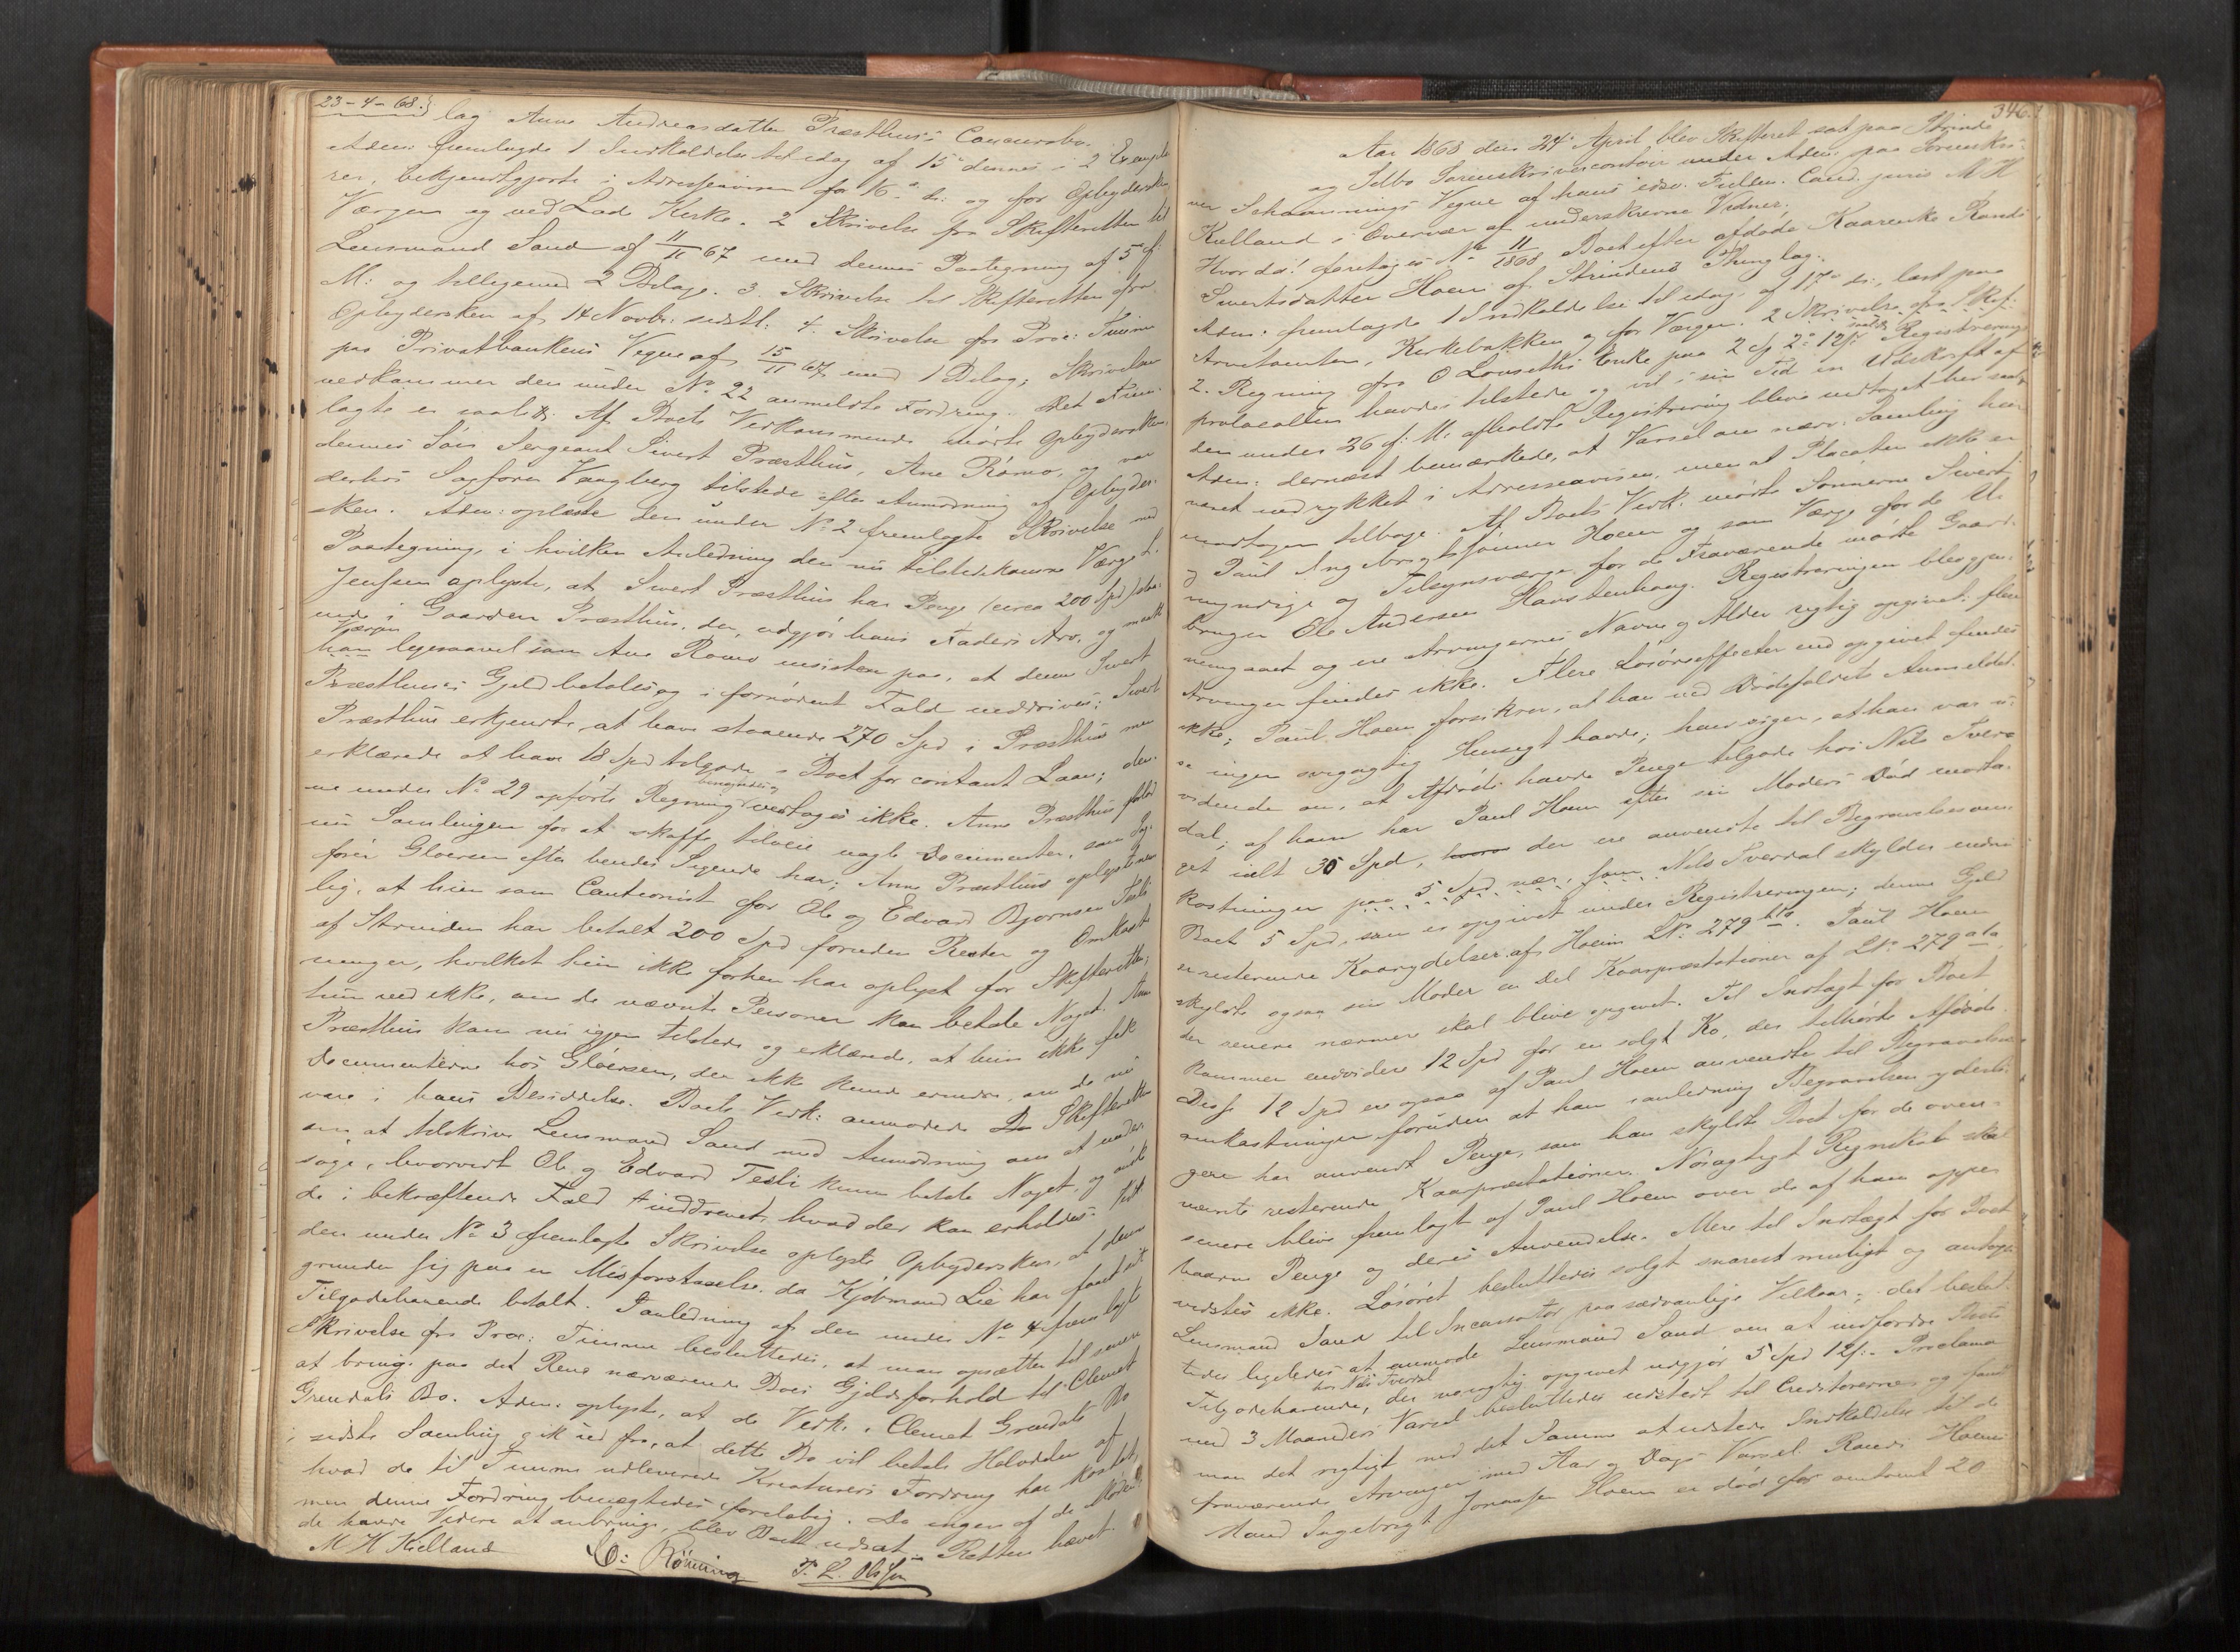 23-4-68.
lag Anne Andreasdatter Præsthus's Concursbo.
Adm: fremlagde 1 Indkaldelse til idag af 15de dennes i 2 Exempla
rer, bekjendtgjorte i Adresseavisen for 16de ds: og for Opbydersken,
Værgen og ved Lade Kirke. 2 Skrivelse fra Skifteretten til
Lensmand Sand af 11/11 67 med dennes Paategning af 5 f:
M: og tillegemed 2 Bilage. 3. Skrivelse til Skifteretten fra
Opbydersken af 14 Novbr: sidstl: 4. Skrivelse fra Proc: Timme
paa Privatbankens Vegne af 15/11 67 med 1 Bilag; Skrivelsen
vedkommer den under No 22 anmeldte Fordring. Det Frem-
lagte er saal: Af Boets Vedkommende mødte Opbydersken,
dennes Søn Sergeant Sivert Præsthus, Ane Rømo, og var
derhos Sagfører Vangberg tilstede efter Anmodning af Opbyder-
sken. Adm: oplæste den under No 2 fremlagte Skrivelse med
Paategning, i hvilken Anledning den nu tilstedekomne Værge L.
Jenssen oplyste, at Sivert Præsthus har Penge (circa 200 Spd) staa-
ende i Gaarden Præsthus, der udgjør hans Faders Arv, og maatte
Værgen
han ligesaavel som Ane Rømo insistere paa, at denne Sivert
Præsthus's Gjeld betales og i fornødent Fald inddrives; Sivert
Præsthus erkjendte, at have staaende 270 Spd i Præsthus men
erklærede at have 18 Spd tilgode i Boet for contant Laan; den-
benægtedes og
ne under No 29 opførte Regning vedtages ikke. Anne Præsthus forlod
nu Samlingen for at skaffe tilveie nogle Documenter, som Sag-
fører Gløersen efter hendes Sigende har; Anne Præsthus oplyste nem-
lig, at hun som Cautionist for Ole og Edvard Bjørnsen Tesli
af Strinden har betalt 200 Spd foruden Renter og Omkost-
ninger, hvilket hun ikke forhen har oplyst for Skifteretten;
hun ved ikke, om de nævnte Personer kan betale Noget. Anne
Præsthus kom nu igjen tilstede og erklærede, at hun ikke fik
Documenterne hos Gløersen, der ikke kunde erindre, om de nu
vare i hans Besiddelse. Boets Vedk: anmodede Skifteretten
om at tilskrive Lensmand Sand med Anmodning om at under-
søge, hvorvidt Ole og Edvard Tesli kunne betale Noget, og anmode
de i bekræftende Fald inddrevet, hvad der kan erholdes. Vedk.
den under No 3 fremlagte Skrivelse oplyste Opbydersken, at denne
grunder sig paa en Misforstaaelse, da Kjøbmand Lie har faaet sit
Tilgodehavende betalt. I anledning af den under No 4 fremlagte
Skrivelse fra Proc: Timme besluttedes, at man opsætter til senere
at bringe paa det Rene nærværende Boes Gjeldsforhold til Clemet
Grendals Bo. Adm. oplyste, at de Vedk. i Clemet Grendals Bo
i sidste Samling gik ud fra, at dette Bo vil betale Halvdelen af
hvad de til Timme udleverede Kreaturers Fordring har kostet,
men denne Fordring benægtedes foreløbig. Da ingen af de Mødende
de havde Videre at anbringe, blev Boet udsat. Retten hævet.
M H Kielland C: Rönning T. L. Olsen
346.
Aar 1868 den 24de April blev Skifteret sat paa Strinde
og Selbo Sorenskrivercontor under Adm: paa Sorenskri-
ver Schavnnings Vegne af hans edsv. Fuldm. Cand. juris M H
Kielland i Overvær af underskrevne Vidner;
Hvor da! foretages No 11/1868 Boet efter afdøde Kaarenke Randi
Sivertsdatter Hoem af Strindens Thinglag.
Adm. fremlagde 1 Indkaldelse til idag af 17de ds:, læst paa
Arvetomten, Kirkebakken og for Værgen. 2 Skrivelse fra Skif:
2. Regning fra O Louseths Enke paa 2 Sp 2: 12 s. Registrerings-
protocollen havdes tilstede og vil i sin Tid en Udskrift af
den under 26 f: M: afholdte Registrering blive indtaget her saal.
Adm: dernæst bemærkede, at Varsel om nærv: Samling har
været indrykket i Adresseavisen, men at Placaten ikke er
modtagen tilbage. Af Boets Vedk: mødte Sønnerne Sivert
og Paul Ingebrigtsønner Hoem og som Værge for de U-
myndige og Tilsynsværge for de Fraværende mødte Gaard-
bruger Ole Andersen Havstenhaug. Registreringen blev gjen-
nemgaaet og ere Arvingernes Navne og Alder rigtig opgivet; flere
Arvinger findes ikke. Flere Løsøreeffecter end opgivet findes
ikke; Paul Hoem forsikrer, at han ved Dødsfaldets Anmeldel-
se ingen svigagtig Hensigt havde; han siger, at han var u-
vidende om, at Afdøde havde Penge tilgode hos Nils Tver-
dal; af ham har Paul Hoem efter sin Moders Død modta-
get ialt 35 Spd, der ere anvendte til Begravelsesom-
kostninger paa 5 Spd nær, som Nils Tverdal skylder endnu
Boet 5 Spd, som er opgivet under Registreringen; denne Gjeld
er resterende Kaarydelser af Hoem LNo. 279 b. Paul Hoem
skyldte ogsaa sin Moder en Del Kaarpræstationer af LNo. 279 a,
der senere nærmere skal blive opgivet. Til Indtægt for Boet
kommer endvidere 12 Spd for en solgt Ko, der tilhørte Afdøde.
Disse 12 Spd ere ogsaa af Paul Hoem anvendte til Begravelses-
omkostninger foruden at han i anledning Begravelsen yderli-
gere har anvendt Penge, som han skyldte Boet for de oven-
nævnte resterende Kaarpræstationer. Nøiagtigt Regnskab skal
senere blive fremlagt af Paul Hoem over de af ham oppe-
baarne Penge og deres Anvendelse. Mere til Indtægt for Boet
vidstes ikke. Løsøret besluttedes solgt snarest muligt og antoges
Lensmand Sand til Incassator paa sædvanlige Vilkaar; det beslut-
tedes ligeledes at anmode Lensmand Sand om at indfordre Boets
hos Nils Tverdal
Tilgodehavende, der nøiagtig opgivet udgjør 5 Spd 12 s:. Proclama
med 3 Maaneders Varsel besluttedes udstedt til Creditorerne og fandt
man det rigtigt med det Samme at udstede Indkaldelse til de
fraværende Arvinger med Aar og Dags Varsel. Randi Hoems
Mand Ingebrigt Jonassen Hoem er død for omtrent 20